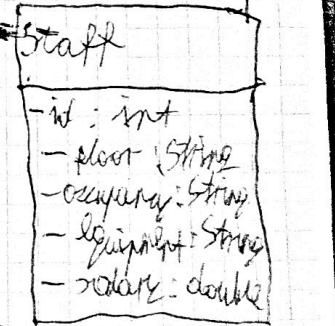 Staff
- id : int
- floor : String
- occupancy : String
- equipment : String
- salary : double